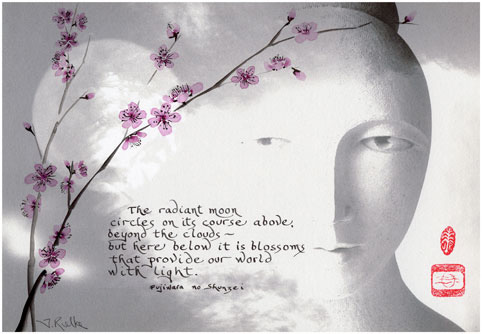 The radiant moon
circles on its course above,
beyond the clouds ~
but here below it is blossoms
that provide our world
with light.
Fujiwara no Shunzei